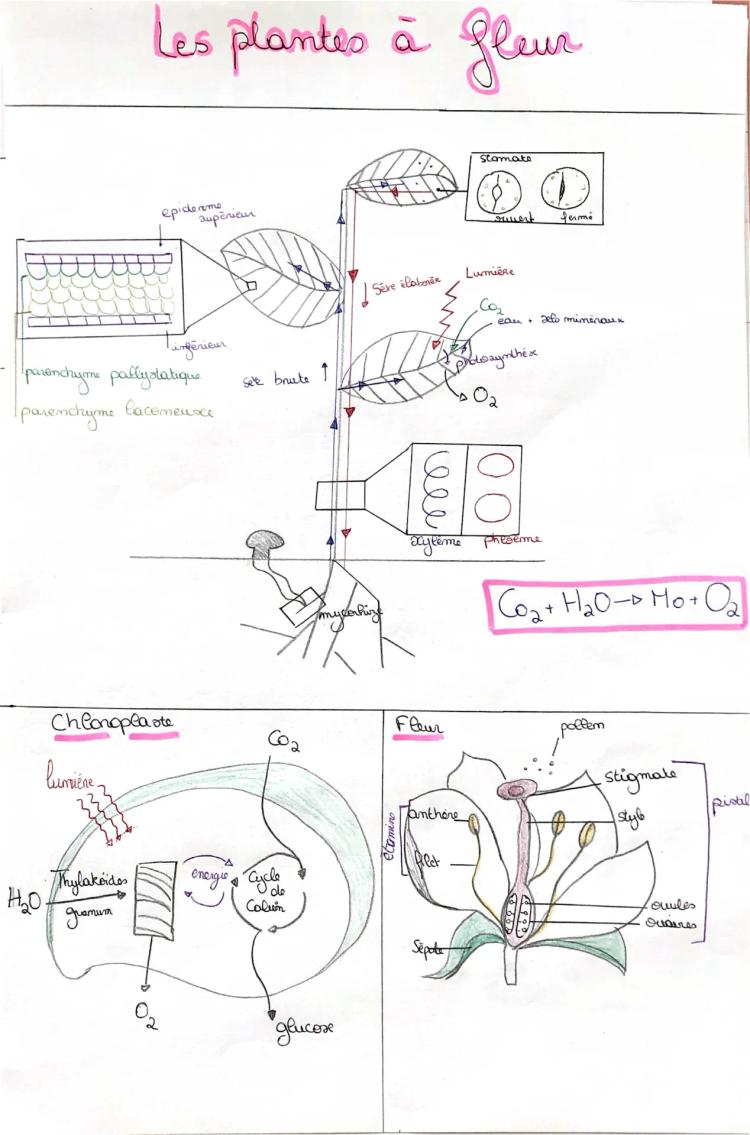 Les plantes à fleur
stomate
ouvert
fermé
epiderme
supérieur
inférieur
parenchyme pallystatique
parenchyme lacomeuse
Sève élaborée
Lumière
Co2
eau + sels minéraux
photosynthèse
O2
sève brute
xylème
phloème
mycorhize
Co2 + H2O → Mo + O2
Chloroplaste
Co2
lumière
H2O
Thylakoïdes
granum
énergie
Cycle
de
Calvin
O2
glucose
Fleur
pollen
stigmate
pistal
anthère
style
étamine
filet
ovules
ovaires
Sépale